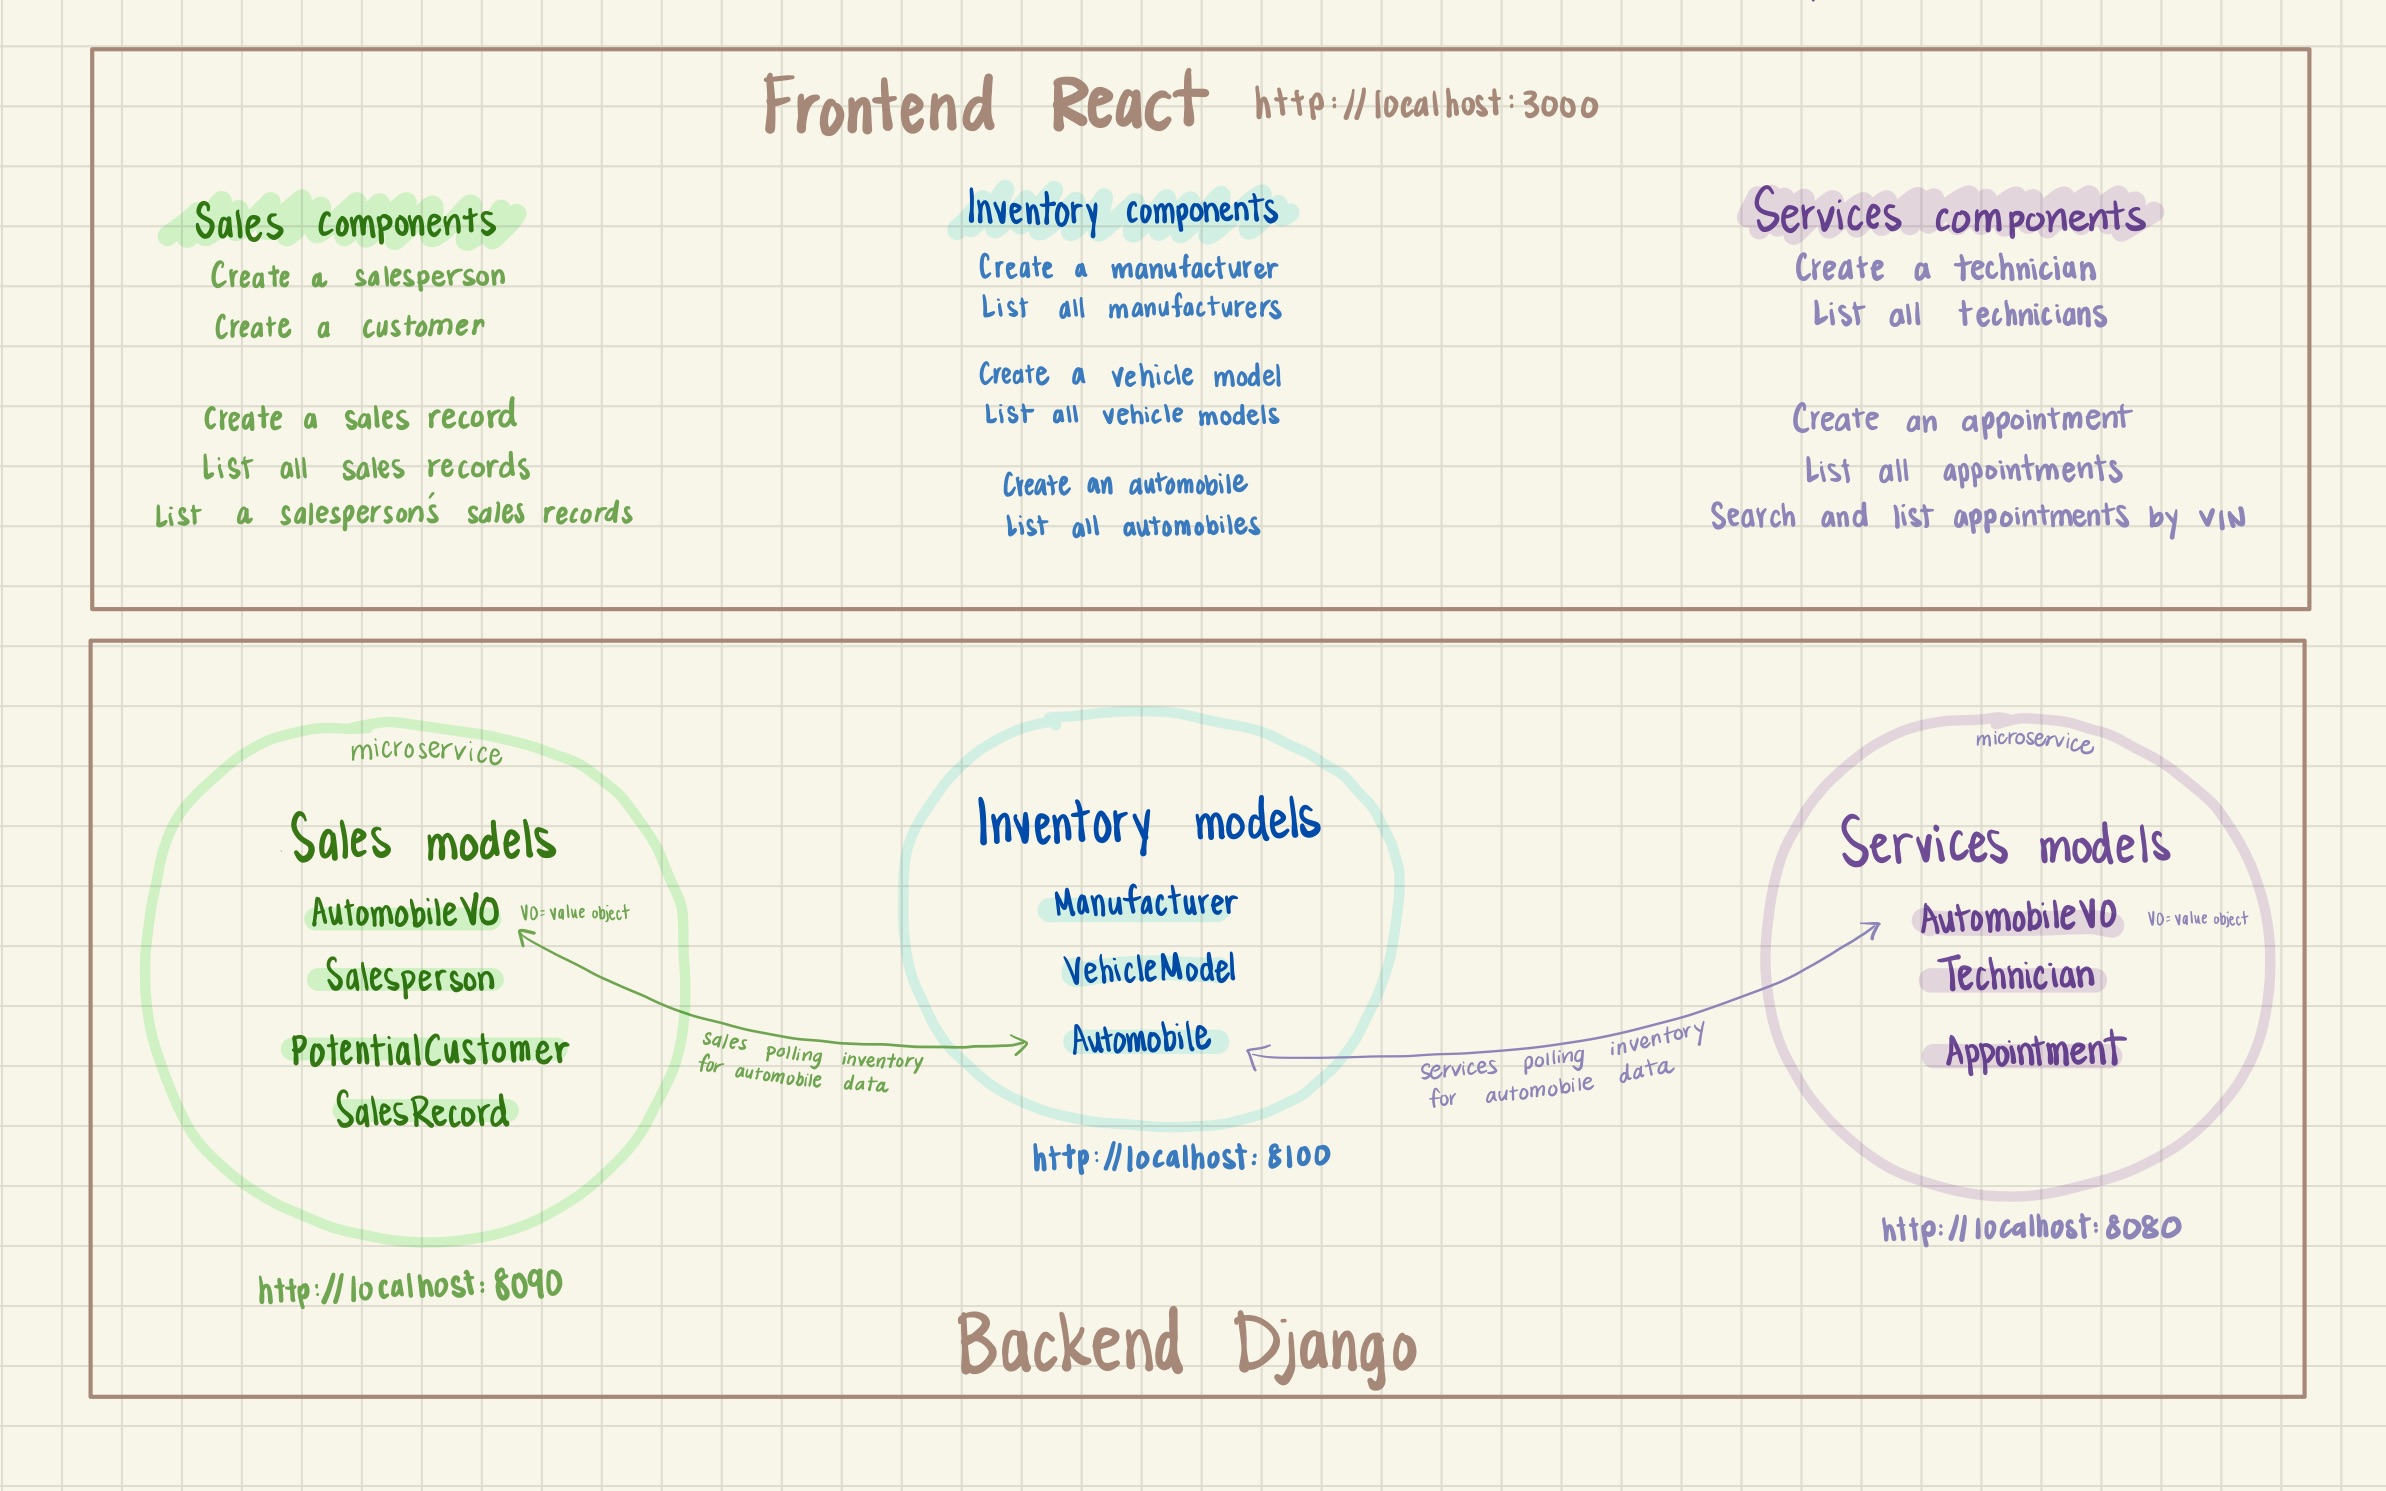 Frontend React http://localhost:3000
Sales components
Create a salesperson
Create a customer
Create a sales record
List all sales records
List a salesperson's sales records
Inventory components
Create a manufacturer
List all manufacturers
Create a vehicle model
List all vehicle models
Create an automobile
List all automobiles
Services components
Create a technician
List all technicians
Create an appointment
List all appointments
Search and list appointments by VIN
microservice
Sales models
AutomobileVO VO=value object
Salesperson
PotentialCustomer
SalesRecord
http://localhost:8090
Sales polling inventory
for automobile data
Inventory models
Manufacturer
VehicleModel
Automobile
http://localhost:8100
Services polling inventory
for automobile data
microservice
Services models
AutomobileVO VO=value object
Technician
Appointment
http://localhost:8080
Backend Django